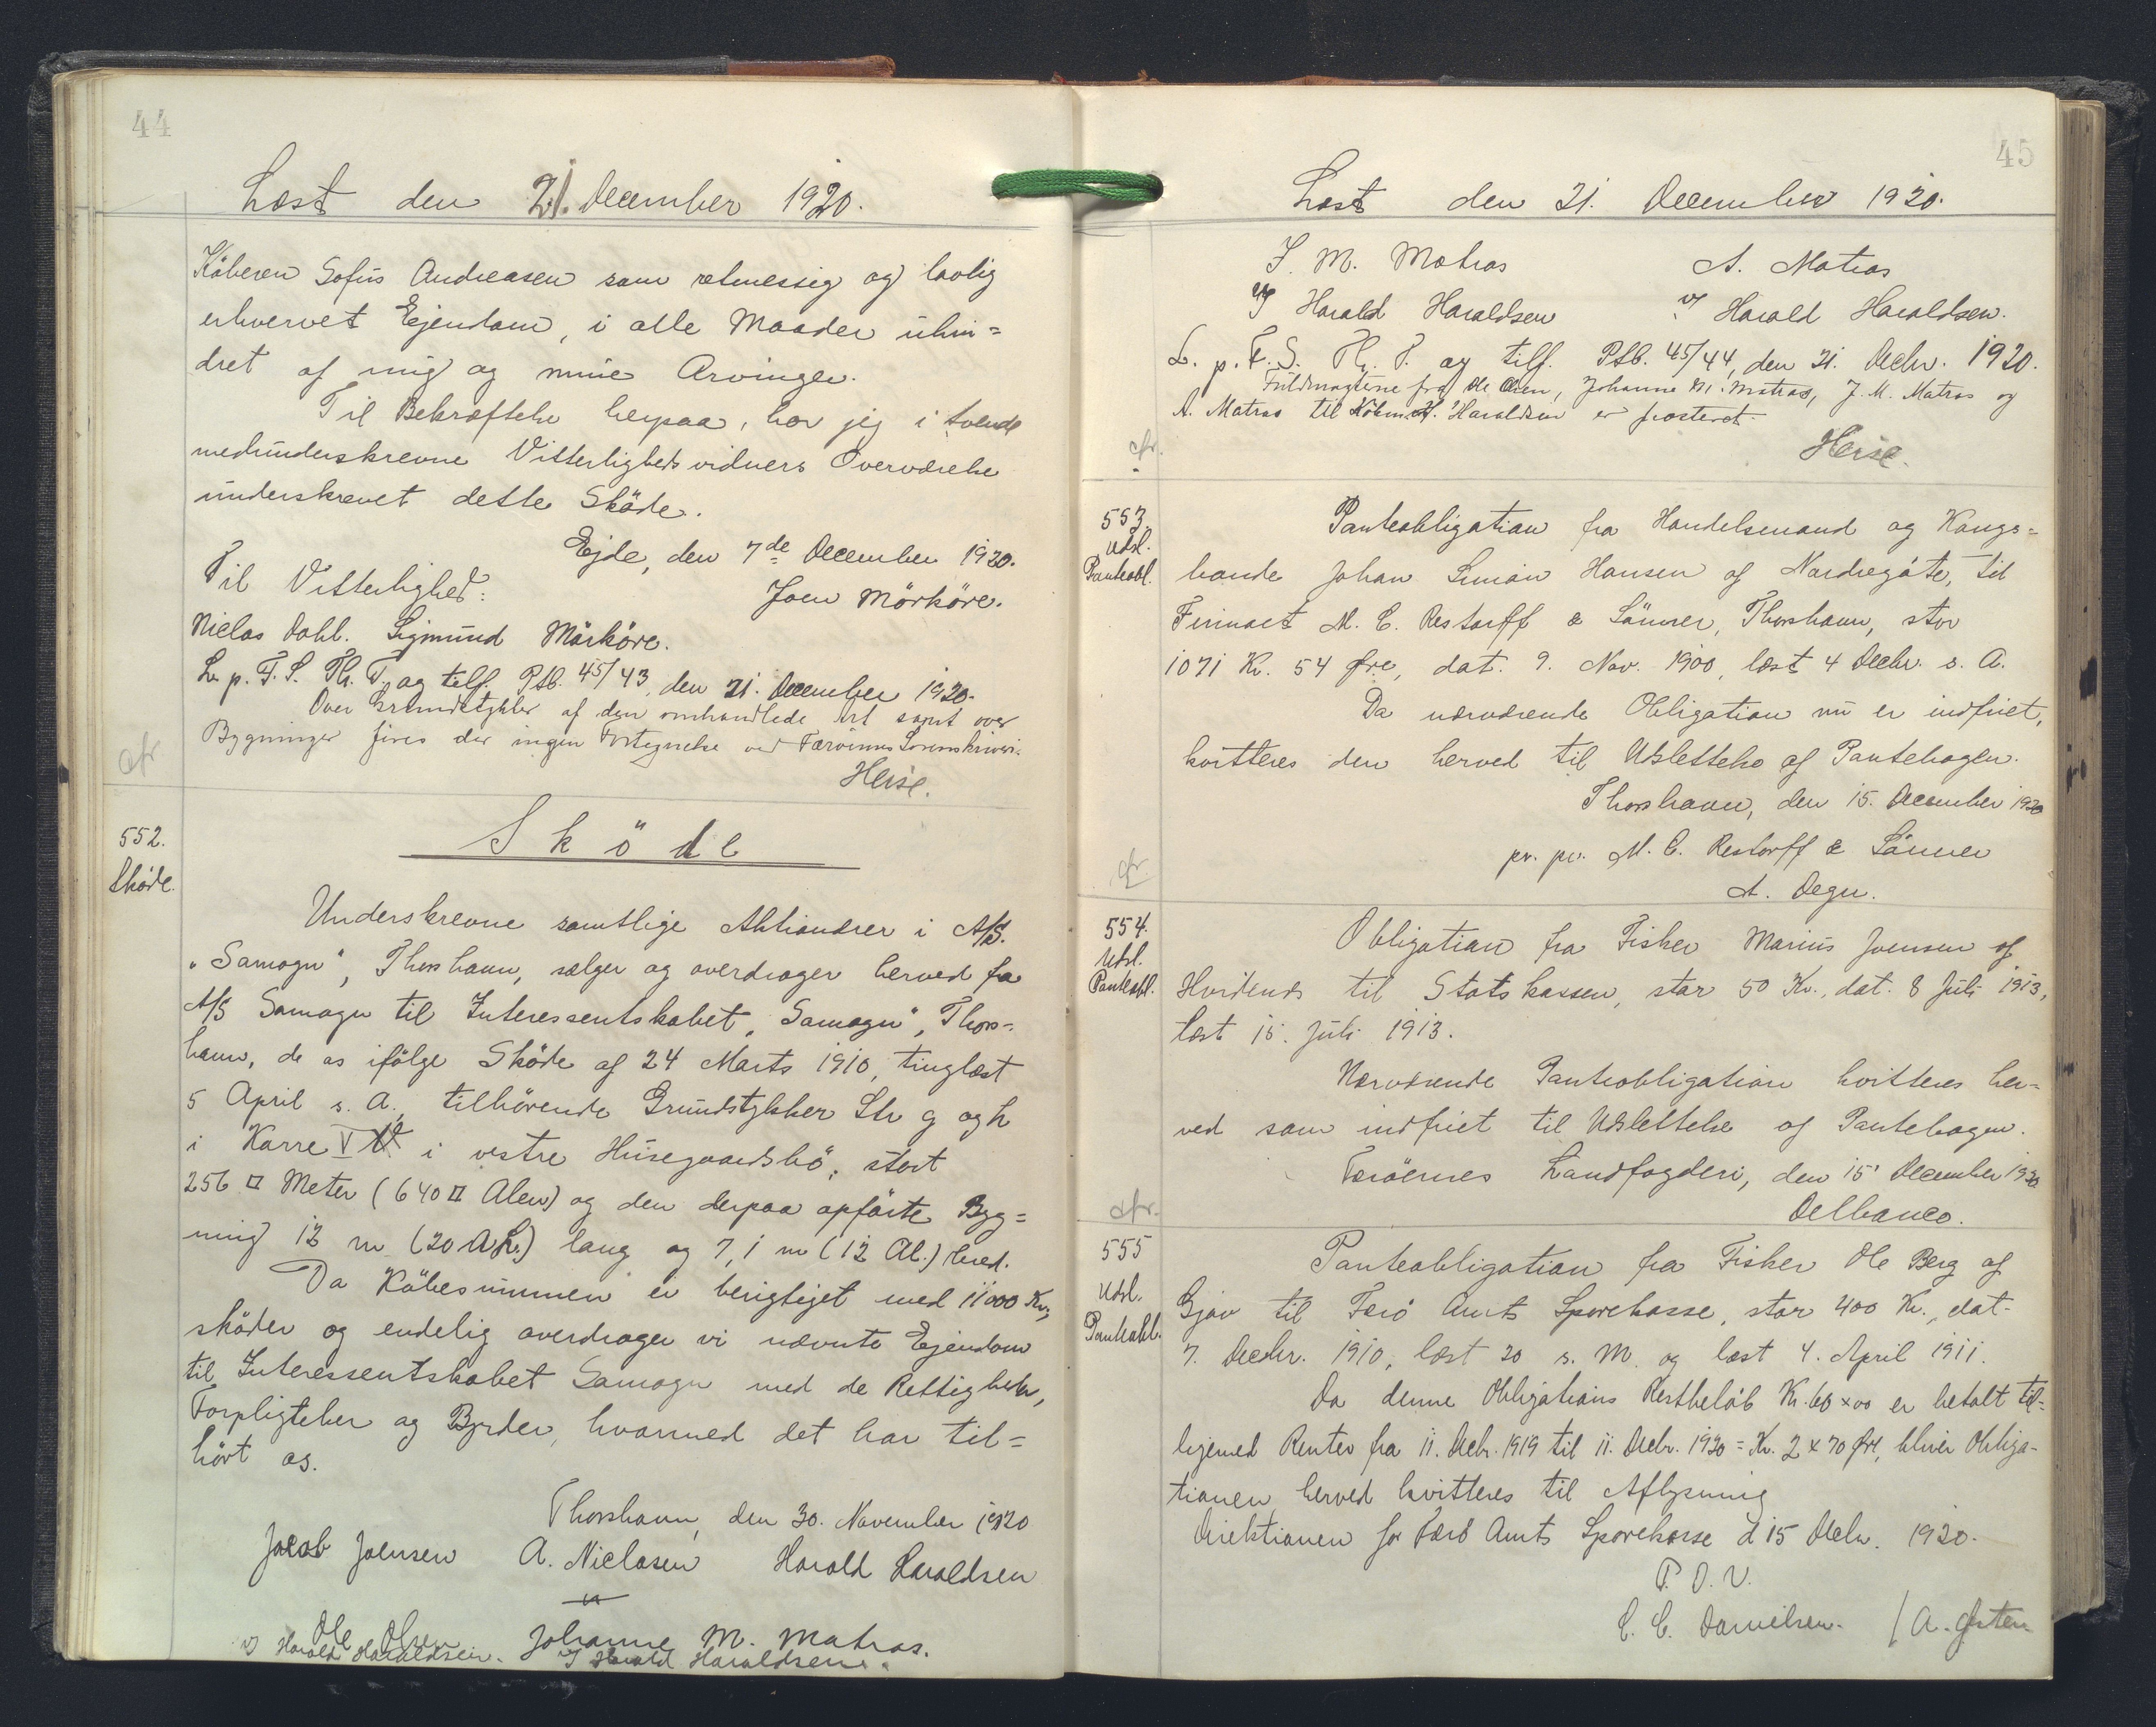 44
Læst den 21. December 1920.
Köberen Sofus Andreasen som retmessig og lovlig
erhvervet Ejendom, i alle Maader uhin=
dret af mig og mine Arvinger.
Til Bekræftelse herpaa, har jeg i tvende
medunderskrevne Vitterlighedsvidners Overværelse
underskrevet dette Sköde.
Ejde, den 7de December 1920.
Til Vitterlighed:
Joen Mörköre.
Niclas Dahl. Sigmund Mörköre.
L. p. F. S. Th. T. og tilf. Ptb. 45/43, den 21. December 1920.
Over Grundstykker af den omhandlede Art samt over
Bygninger föres der ingen Fortegnelse ved Færöernes Sorenskriveri.
Heise.
cfr
552.
Sköde.
Sköde
Underskrevne samtlige Aktionærer i A/S.
"Samagn", Thorshavn, sælger og overdrager herved fra
A/S Samagn til Interessentskabet "Samagn", Thors=
havn, de os ifölge Sköde af 24 Marts 1910, tinglæst
5 April s. A., tilhörende Grundstykker Ltr g og h
i Karre V i vestre Húsegaardsbö, stort
256 □ Meter (640 □ Alen) og den derpaa opförte Byg=
ning 12 m (20 Al.) lang og 7,1 m (12 Al.) bred.
Da Köbesummen er berigtiget med 11000 Kr,
sköder og endelig overdrager vi nævnte Ejendom
til Interessentskabet Samagn med de Rettigheder,
Forpligtelser og Byrder, hvormed det har til=
hört os.
Thorshavn, den 30. November 1920
Jacob Joensen A. Niclasen Harald Haraldsen
Ole Olsen Johanne M. Matras.
v/ Harald Haraldsen. v/ Harald Haraldsen.
45
Læst den 21. December 1920.
J. M. Matras A. Matras
v/ Harald Haraldsen v/ Harald Haraldsen.
L. p. F. S. Th. T. og tilf. Ptb. 45/44, den 21. Decbr. 1920.
Fuldmagterne fra Ole Olsen, Johanne M. Matras, J. M. Matras og
A. Matras til Köbm. H. Haraldsen er præsteret.
Heise.
cfr.
553.
Udsl.
Panteobl.
Panteobligation fra Handelsmand og Kongs=
bonde Johan Simon Hansen af Nordregöte, til
Firmaet M. C. Restorff & Sönner, Thorshavn, stor
1071 Kr. 54 Øre, dat. 9. Nov. 1900, læst 4 Decbr. s. A.
Da nærværende Obligation nu er indfriet,
kvitteres den herved til Udslettelse af Pantebogen.
Thorshavn, den 15. December 1920
pr. pr. M. C. Restorff & Sönner
A. Degn.
cfr.
554.
Udsl.
Panteobl.
Obligation fra Fisker Marius Joensen af
Hvidenæs til Statskassen, stor 50 Kr., dat. 8 Juli 1913,
læst 15. Juli 1913.
Nærværende Panteobligation kvitteres her=
ved som indfriet til Udslettelse af Pantebogen.
Færöernes Landfogderi, den 15' December 1920
Delbanco.
cfr.
555
Udsl.
Panteobl.
Panteobligation fra Fisker Ole Berg af
Gjov til Færö Amts Sparekasse, stor 400 Kr., dat.
7. Decbr. 1910, læst 20 s. M. og læst 4. April 1911.
Da denne Obligations Restbelöb Kr. 60 x 00 er betalt til=
ligemed Renter fra 11. Decbr. 1919 til 11. Decbr. 1920 = Kr. 2 x 70 Øre, bliver Obliga-
tionen herved kvitteres til Aflysning
Direktionen for Færö Amts Sparekasse d 15 Decbr. 1920.
P. D. V.
C. C. Danielsen. / A.